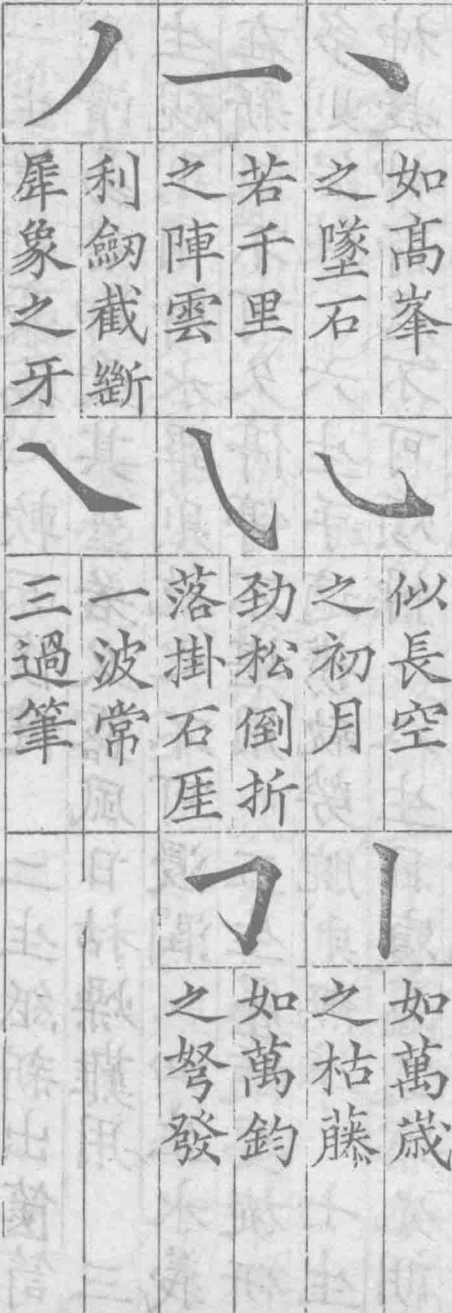 丶
如髙峯
之墜石
一
若千里
之陣雲
丿
利劔截斷
犀象之牙
乚
似長空
之初月
㇂
劲松倒折
落掛石厓
㇏
一波常
三過筆
丨
如萬歳
之枯藤
㇆
如萬鈞
之弩發